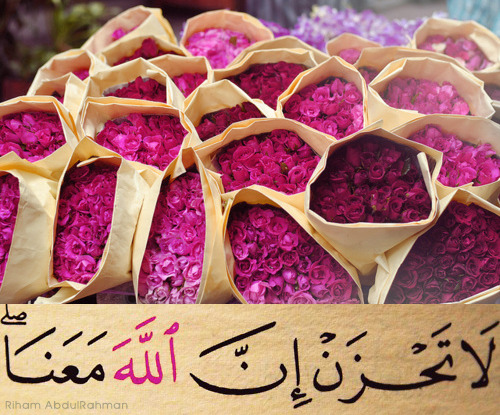 لَا تَحْزَنْ إِنَّ ٱللَّهَ مَعَنَا ۖ
Riham AbdulRahman